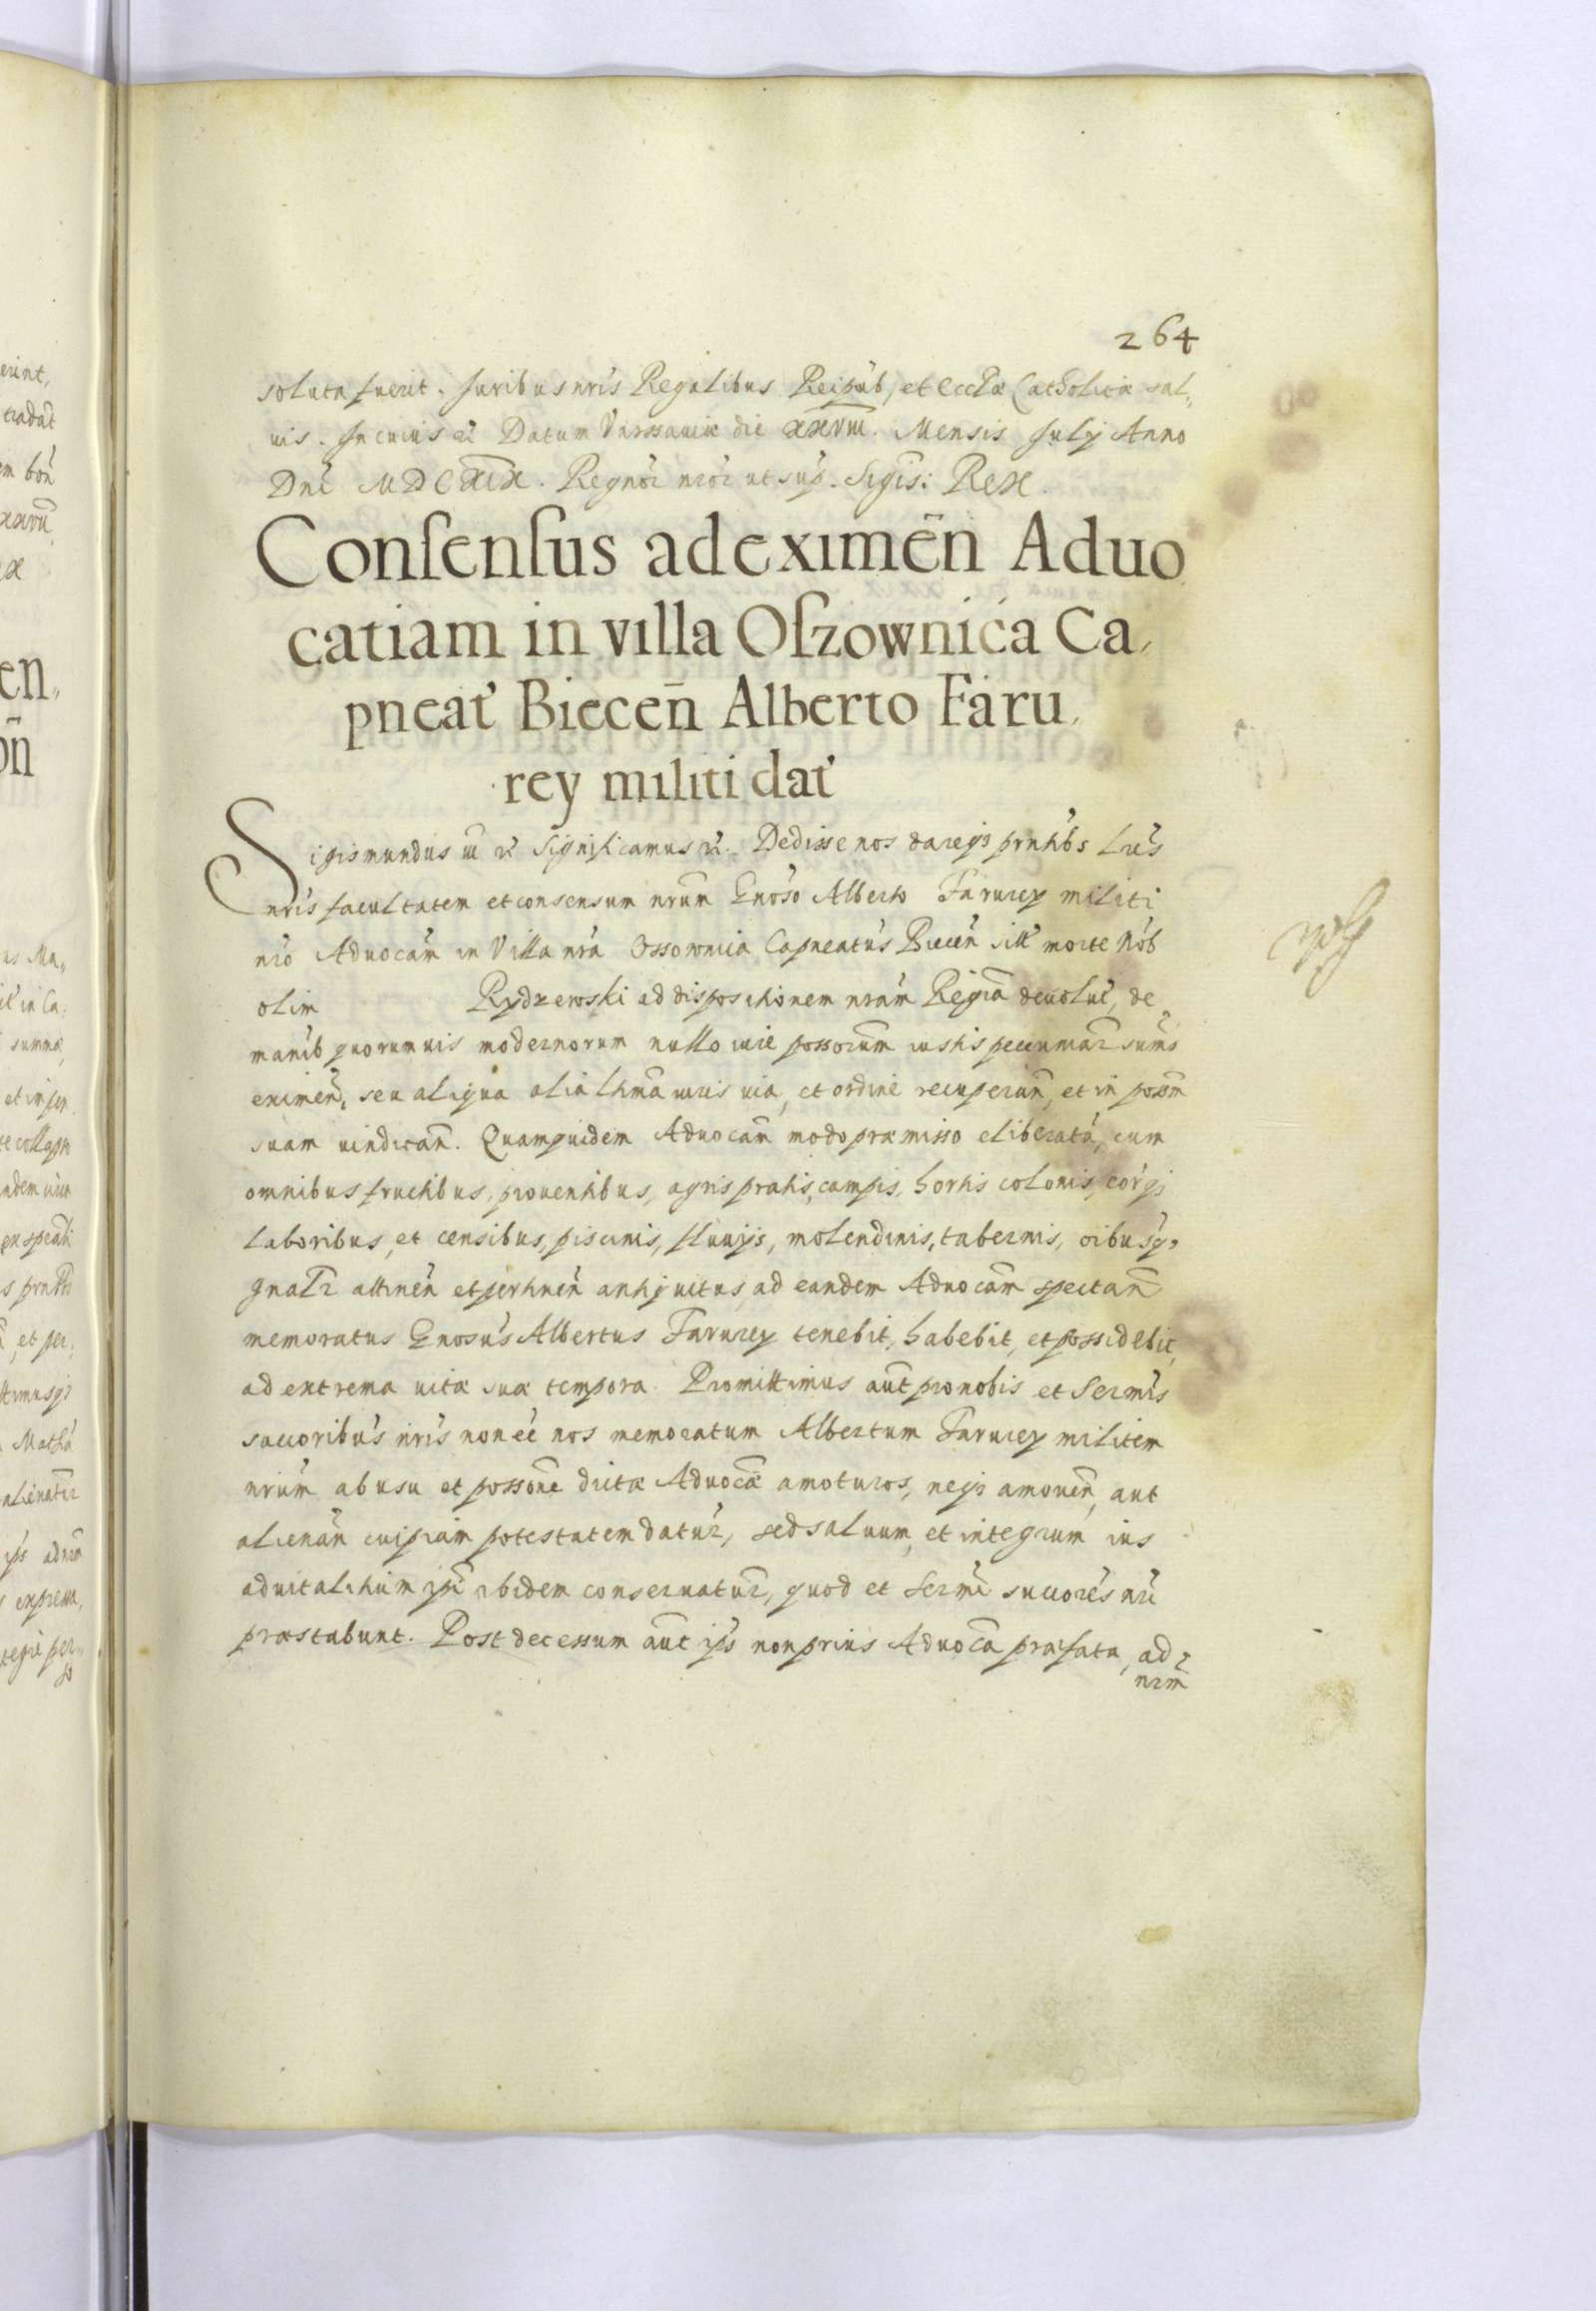 264
soluta fuerit. Juribus nrĩs Regalibus Reipub, et Ecclae Catholicae sal,
uis. In cuius ec Datum Varssauiae die XXVIII. Mensis July Anno
Dnĩ MDCXIX. Regnor nror ut sup. Sigis: Rex.
Consensus ad eximen̄ Aduo
catiam in villa Oszownica Ca,
pneat Biecen̄ Alberto Faru,
rey militi dat
Sigismundus III etc Significamus etc. Dedisse nos dareqз prntibs Lrĩs
nrĩs facultatem et consensum nrum Gnoso Alberto Farurey militi
nro Aduocam in Villa nra Ossownica Capneatus Biecen sitt morte Nob
olim Rydzewski ad dispositionem nram Regiã deuolut, de
manib quorumuis modernorum nullo iure possorum iustis pecuniar sums
eximen, seu aliqua alia ltima iuris uia, et ordine recuperan, et in possm
suam uindican. Quamquidem Aduocam modo praemisso eliberatã, cum
omnibus fructibus, prouentibus, agris pratis, campis, hortis colonis, eorqз
laboribus, et censibus, piscinis, fluuijs, molendinis, tabernis, oibusqз
gnalr attinen et pertinen antiquitus, ad eandem Aduocam spectan
memoratus Gnosus Albertus Farurey tenebit, habebit, et possidebit,
ad extrema uitae suae tempora. Promittimus aut pro nobis et Sermis
succoribus nrĩs non eẽ nos memoratum Albertum Farurey militem
nrum ab usu et possone dictae Aduocae amoturos, neqз amouen, aut
alienan cuipiam potestatem datur, sed saluum, et integrum ius
aduitalitium ipi ibidem conseruatur, quod et Sermi succores nri
praestabunt. Post decessum aut ips non prius Aduoca praefata, ad
nrm